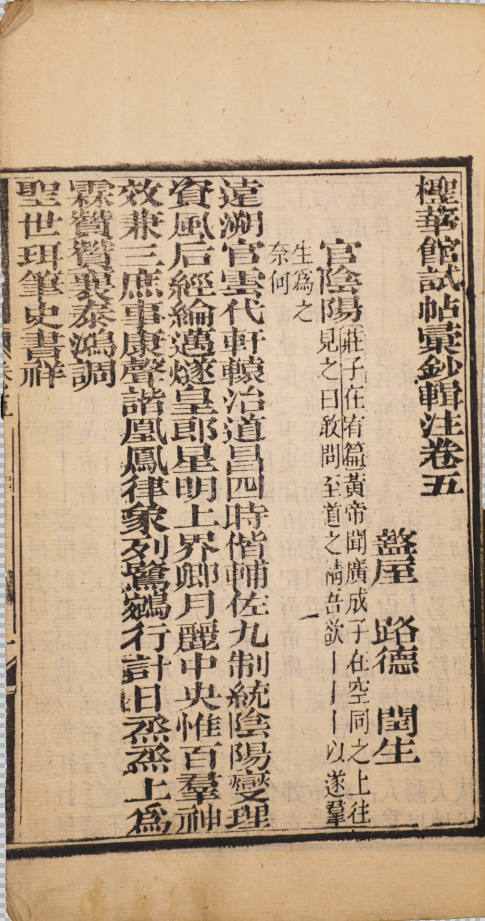 檉華館試帖彙鈔輯注卷五
盩厔 路德 閏生
官陰陽 莊子在宥篇黃帝聞廣成子在空同之上往
見之曰敢問至道之精吾欲丨丨丨以遂羣
生爲之
奈何
遠溯官雲代軒轅治道昌四時偕輔佐九制統陰陽燮理
資風后經綸邁燧皇郎星明上界卿月麗中央惟百羣神
效兼三庶事康聲諧凰鳳律象列鷺鵷行計日烝烝上爲
霖贊贊襄泰鴻調
聖世珥筆史書祥
卷五